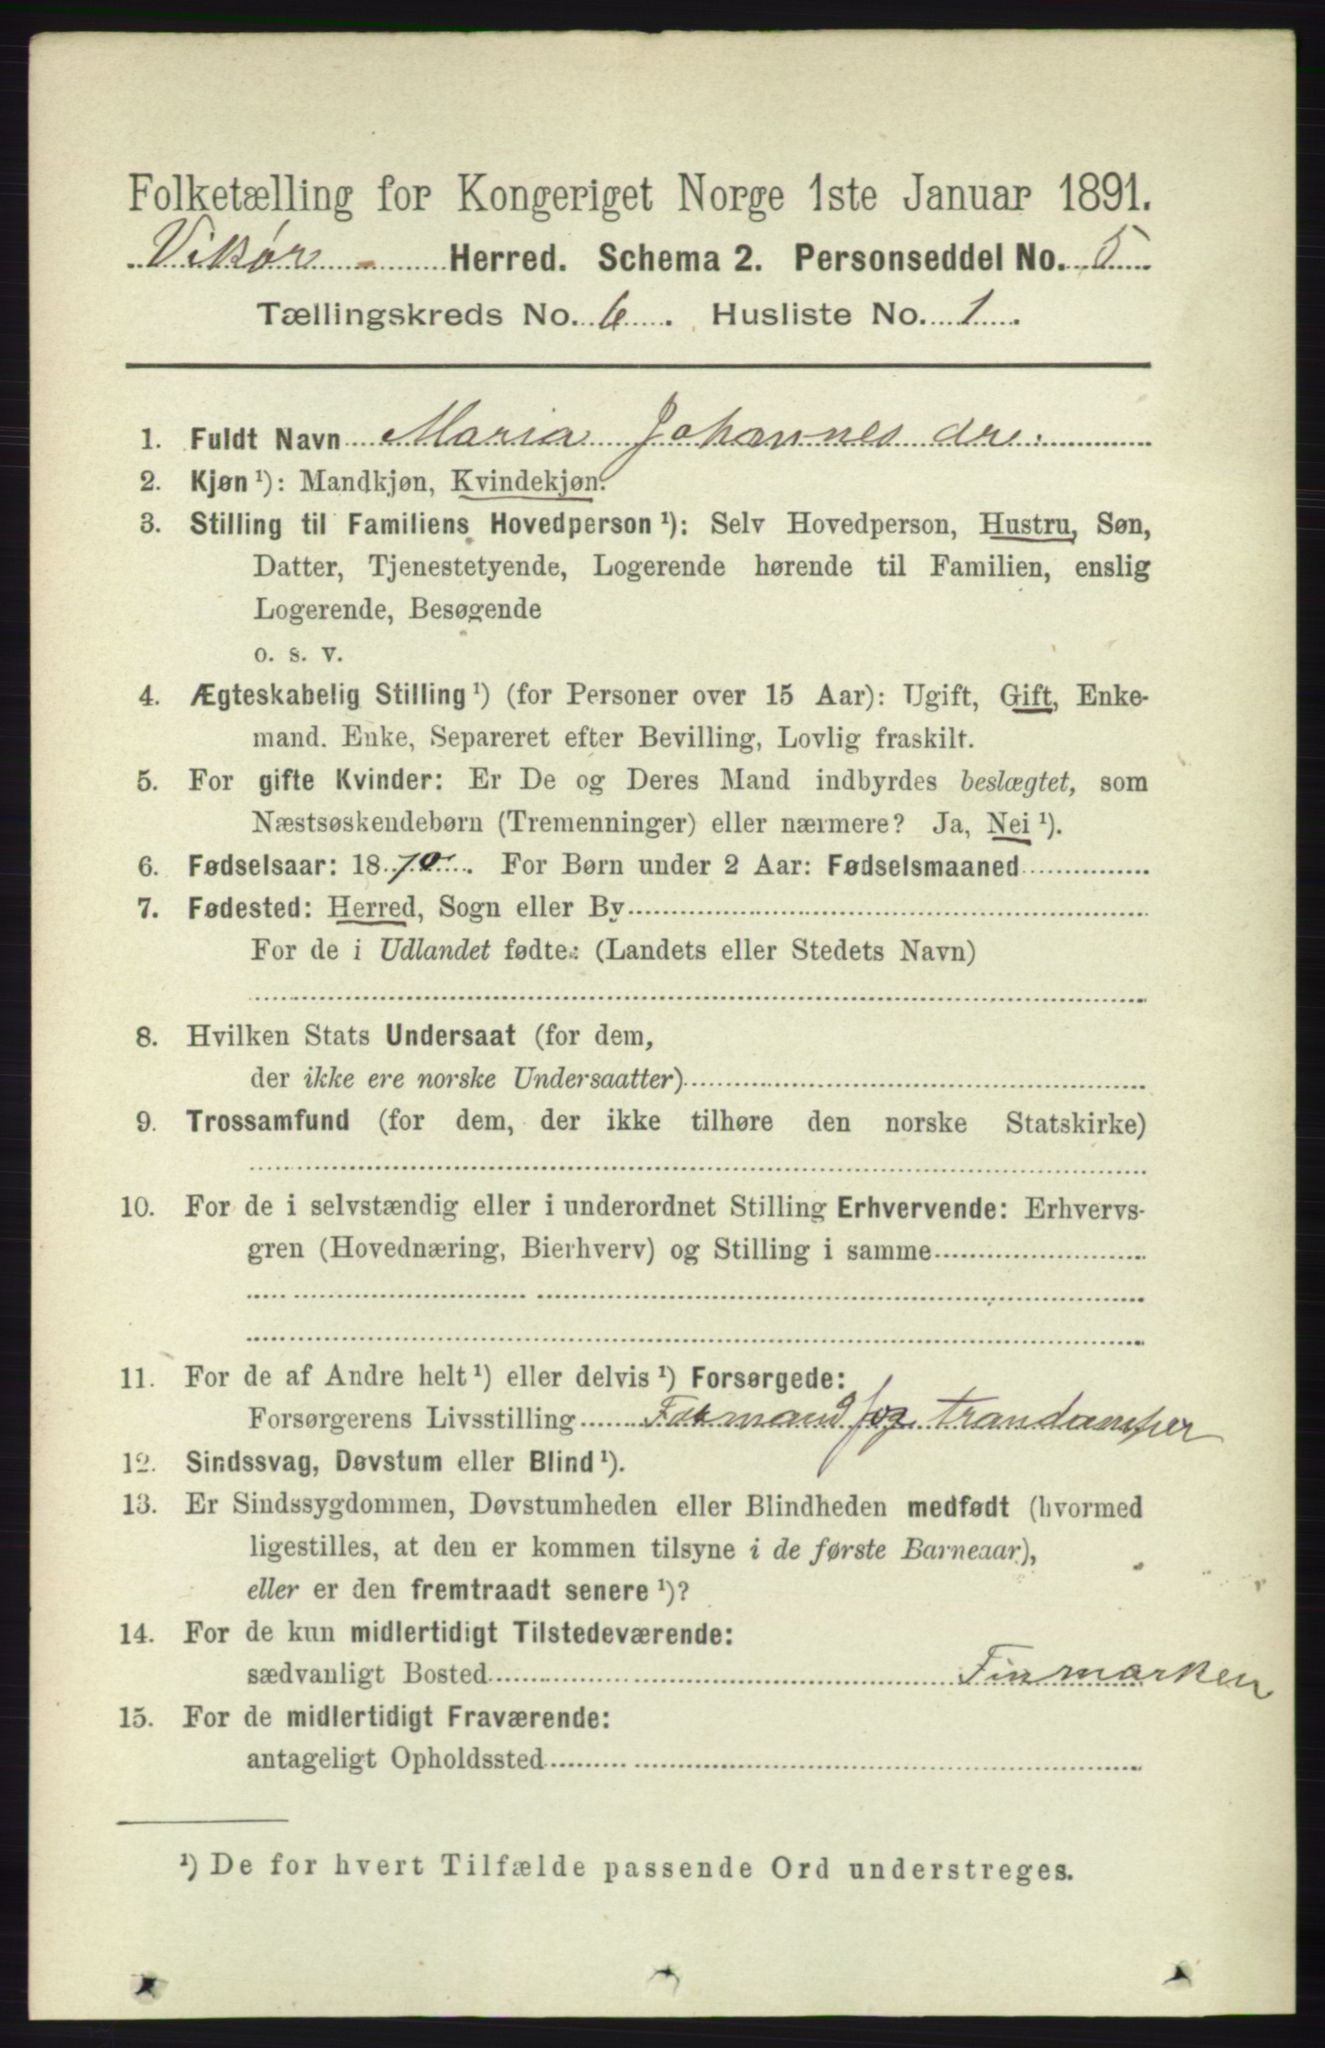 Folketælling for Kongeriget Norge 1ste Januar 1891.
Vikør Herred. Schema 2. Personseddel No. 5
Tællingskreds No. 6. Husliste No. 1.
1. Fuldt Navn Maria Johannesdr.
2. Kjøn ¹): Mandkjøn, Kvindekjøn.
3. Stilling til Familiens Hovedperson ¹): Selv Hovedperson, Hustru, Søn,
Datter, Tjenestetyende, Logerende hørende til Familien, enslig
Logerende, Besøgende
o. s. v.
4. Ægteskabelig Stilling ¹) (for Personer over 15 Aar): Ugift, Gift, Enke-
mand. Enke, Separeret efter Bevilling, Lovlig fraskilt.
5. For gifte Kvinder: Er De og Deres Mand indbyrdes beslægtet, som
Næstsøskendebørn (Tremenninger) eller nærmere? Ja, Nei ¹).
6. Fødselsaar: 1870. For Børn under 2 Aar: Fødselsmaaned
7. Fødested: Herred, Sogn eller By
For de i Udlandet fødte: (Landets eller Stedets Navn)
8. Hvilken Stats Undersaat (for dem,
der ikke ere norske Undersaatter)
9. Trossamfund (for dem, der ikke tilhøre den norske Statskirke)
10. For de i selvstændig eller i underordnet Stilling Erhvervende: Erhvervs-
gren (Hovednæring, Bierhverv) og Stilling i samme
11. For de af Andre helt ¹) eller delvis ¹) Forsørgede:
Forsørgerens Livsstilling Formand og trandamper
12. Sindssvag, Døvstum eller Blind ¹).
13. Er Sindssygdommen, Døvstumheden eller Blindheden medfødt (hvormed
ligestilles, at den er kommen tilsyne i de første Barneaar),
eller er den fremtraadt senere ¹)?
14. For de kun midlertidigt Tilstedeværende:
sædvanligt Bosted Finmarken
15. For de midlertidigt Fraværende:
antageligt Opholdssted
¹) De for hvert Tilfælde passende Ord understreges.